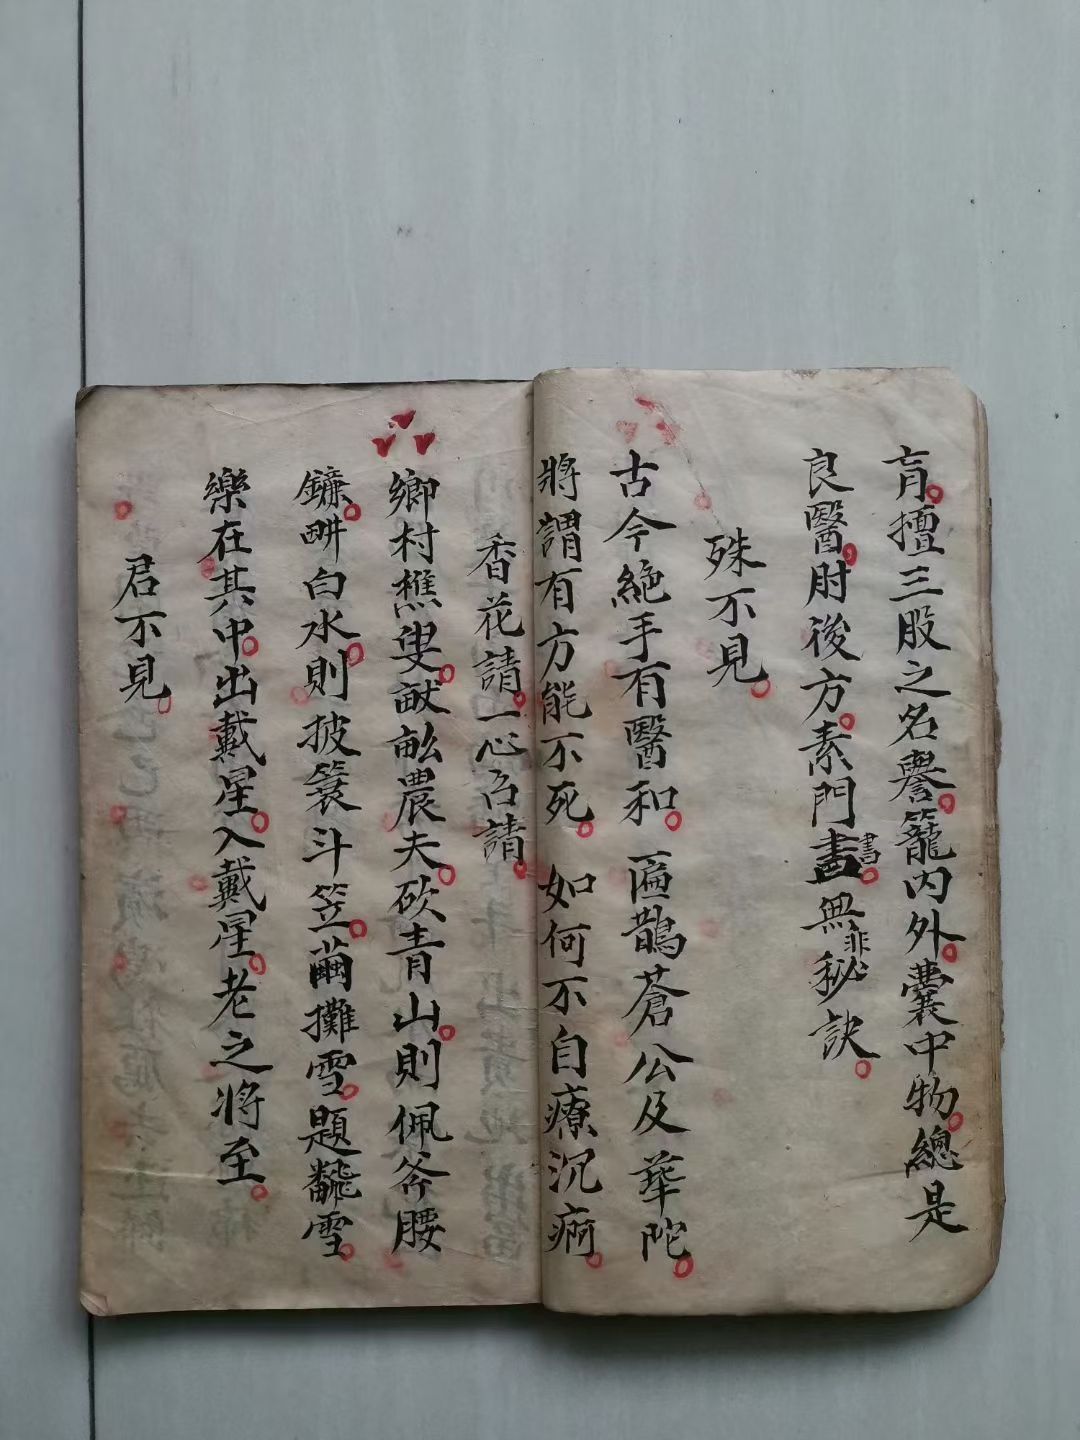 肓擅三股之名譽籠內外囊中物總是
良醫肘後方素門書書無非秘訣
殊不見
古今絶手有醫和匾鵲蒼公及華陀
將謂有方能不死如何不自療沉痾
香花請一心召請
鄉村樵叟畎畝農夫砍青山則佩斧腰
鐮畊白水則披簑斗笠繭攤雪題飜雪
樂在其中出戴星入戴星老之將至
君不見